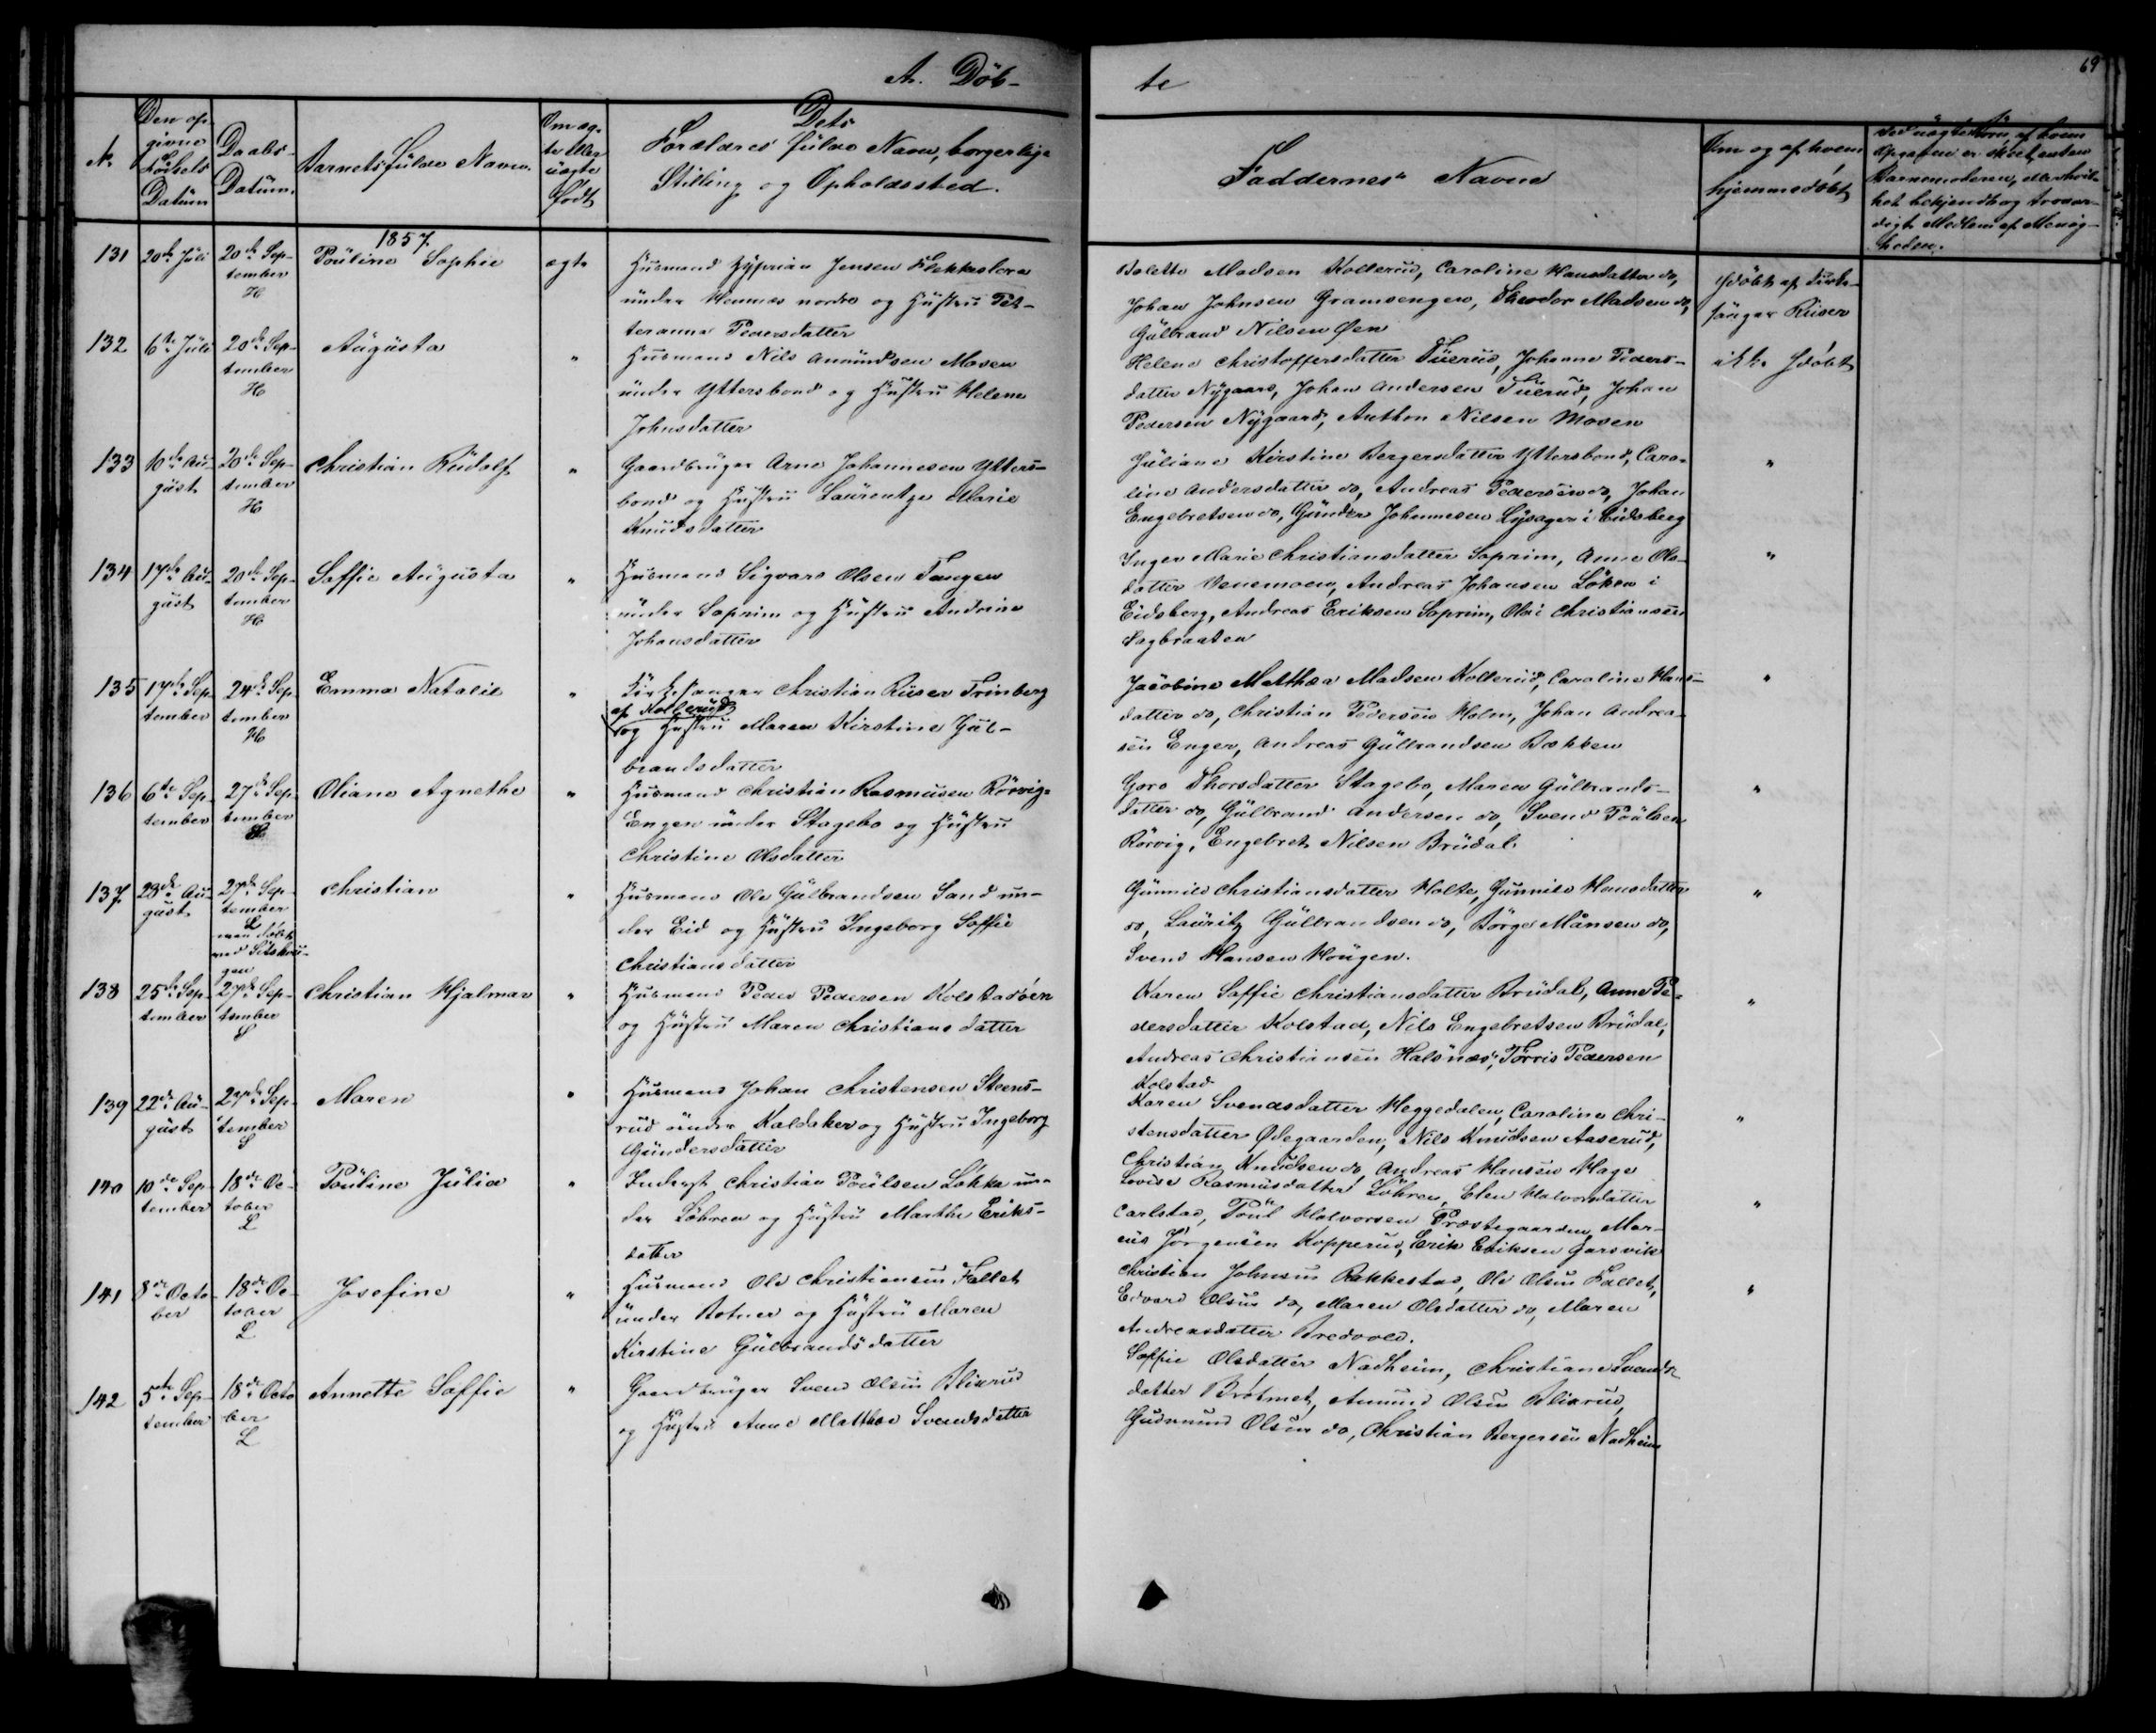 A. Döb-
te
69
No
Den op-
givne
Födsels
Datum
Daabs-
Datum.
Barnets fulde Navn.
Om æg-
te eller
uægte
födt
Dets
Forældres fulde Navn, borgerlige
Stilling og Opholdssted.
Faddernes Navne
Om og af hvem
hjemmedöbt
Ved uægte Börn, af hvem
Opgaven er skeet, enten
Barnemoderen, eller hvil-
ket bekjendt og trovær-
digt Medlem af Menig-
heden.
1857.
131 20de Juli 20de Sep-
tember
H
Pouline Sophie
ægte
Husmand Zyprian Jensen Flekkeslora
under Hemnæs nordre og Hustru Pet-
teranna Pedersdatter
Bolette Madsen Kollerud, Caroline Hansdatter do,
Johan Johnsen Gramsengen, Theodor Madsen do,
Gulbrand Nilsen Øen
hdöbt af Kirke-
sanger Riiser
132 6te Juli 20de Sep-
tember
H
Augusta
"
Husmand Nils Amundsen Mosen
under Yttersbond og Hustru Helene
Johnsdatter
Helene Christoffersdatter Tuerud, Johanne Peders-
datter Nygaard, Johan Andersen Tuerud, Johan
Pedersen Nygaard, Anthon Nilsen Mosen
ikke hdöbt
133 10de Au-
gust
20de Sep-
tember
H
Christian Rudolf
"
Gaardbruger Arne Johannesen Ytters-
bond og Hustru Laurentze Marie
Knudsdatter
Juliane Kirstine Bergersdatter Yttersbond, Caro-
line Andersdatter do, Andreas Pedersen do, Johan
Engebretsen do, Gunder Johannesen Lysager i Eidsberg
"
134 17de Au-
gust
20de Sep-
tember
H
Saffie Augusta
"
Husmand Sigvard Olsen Tangen
under Soprim og Hustru Andrine
Johansdatter
Inger Marie Christiansdatter Soprim, Anne Ols-
datter Venemoen, Andreas Johansen Löken i
Eidsberg, Andreas Eriksen Soprim, Olai Christiansen
Sagbraaten
"
135 17de Sep-
tember
24de Sep-
tember
H
Emma Natalie
"
Kirkesanger Christian Riiser Trinberg
af Kollerud
og Hustru Maren Kirstine Gul-
brandsdatter
Jacobine Matthea Madsen Kollerud, Caroline Hans-
datter do, Christian Pedersen Holm, Johan Andrea-
sen Enger, Andreas Gulbrandsen Bækken
"
136 6te Sep-
tember
27de Sep-
tember
S
Oliane Agnethe
"
Husmand Christian Rasmusen Rörvig-
Engen under Stagebo og Hustru
Christine Olsdatter
Goro Thorsdatter Stagebo, Maren Gulbrands-
datter do, Gulbrand Andersen do, Svend Poulsen
Rörvig, Engebret Nilsen Brudal.
"
137. 23de Au-
gust
27de Sep-
tember
L
men döbt
ved Sidskou-
gen
Christian
"
Husmand Ole Gulbrandsen Sand un-
der Eid og Hustru Ingeborg Saffie
Christiansdatter
Gunnild Christiansdatter Holte, Gunnild Hansdatter
do, Lauritz Gulbrandsen do, Börge Månsen do,
Svend Hansen Hougen.
"
138 25de Sep-
tember
27de Sep-
tember
S
Christian Hjalmar
"
Husmand Peder Pedersen Kolstadöen
og Hustru Maren Christiansdatter
Karen Saffie Christiansdatter Brudal, Anne Pe-
dersdatter Kolstad, Nils Engebretsen Brudal,
Andreas Christiansen Halsnæs, Torris Pedersen
Kolstad
"
139 22de Au-
gust
27de Sep-
tember
S
Maren
"
Husmand Johan Christensen Steens-
rud under Kaldaker og Hustru Ingeborg
Gundersdatter
Karen Svendsdatter Heggedalen, Caroline Chri-
stensdatter Ödegaarden, Nils Knudsen Aaserud,
Christian Knudsen do, Andreas Hansen Hage
"
140 10de Sep-
tember
18de Oc-
tober
L
Pouline Julia
"
Inderst Christian Poulsen Løkka un-
der Löhren og Hustru Marthe Eriks-
datter
Lovise Rasmusdatter Löhren, Elen Halvorsdatter
Carlstad, Poul Halvorsen Præstegaarden, Mar-
cus Jörgensen Kopperud, Erik Eriksen Garsvik
"
141 8de Octo-
ber
18de Oc-
tober
L
Josefine
"
Husmand Ole Christiansen Fallet
under Botner og Hustru Maren
Kirstine Gulbrandsdatter
Christian Johnsen Rakkestad, Ole Olsen Fallet,
Edvard Olsen do, Maren Olsdatter do, Maren
Andreasdatter Bredvold.
"
142 5te Sep-
tember
18de Octo-
ber
L
Annette Saffie
"
Gaardbruger Svend Olsen Blixrud
og Hustru Anne Matthea Svendsdatter
Saffie Olsdatter Nadheim, Christiane Svends-
datter Bråtmet, Amund Olsen Blixrud,
Gudmund Olsen do, Christian Bergersen Nadheim